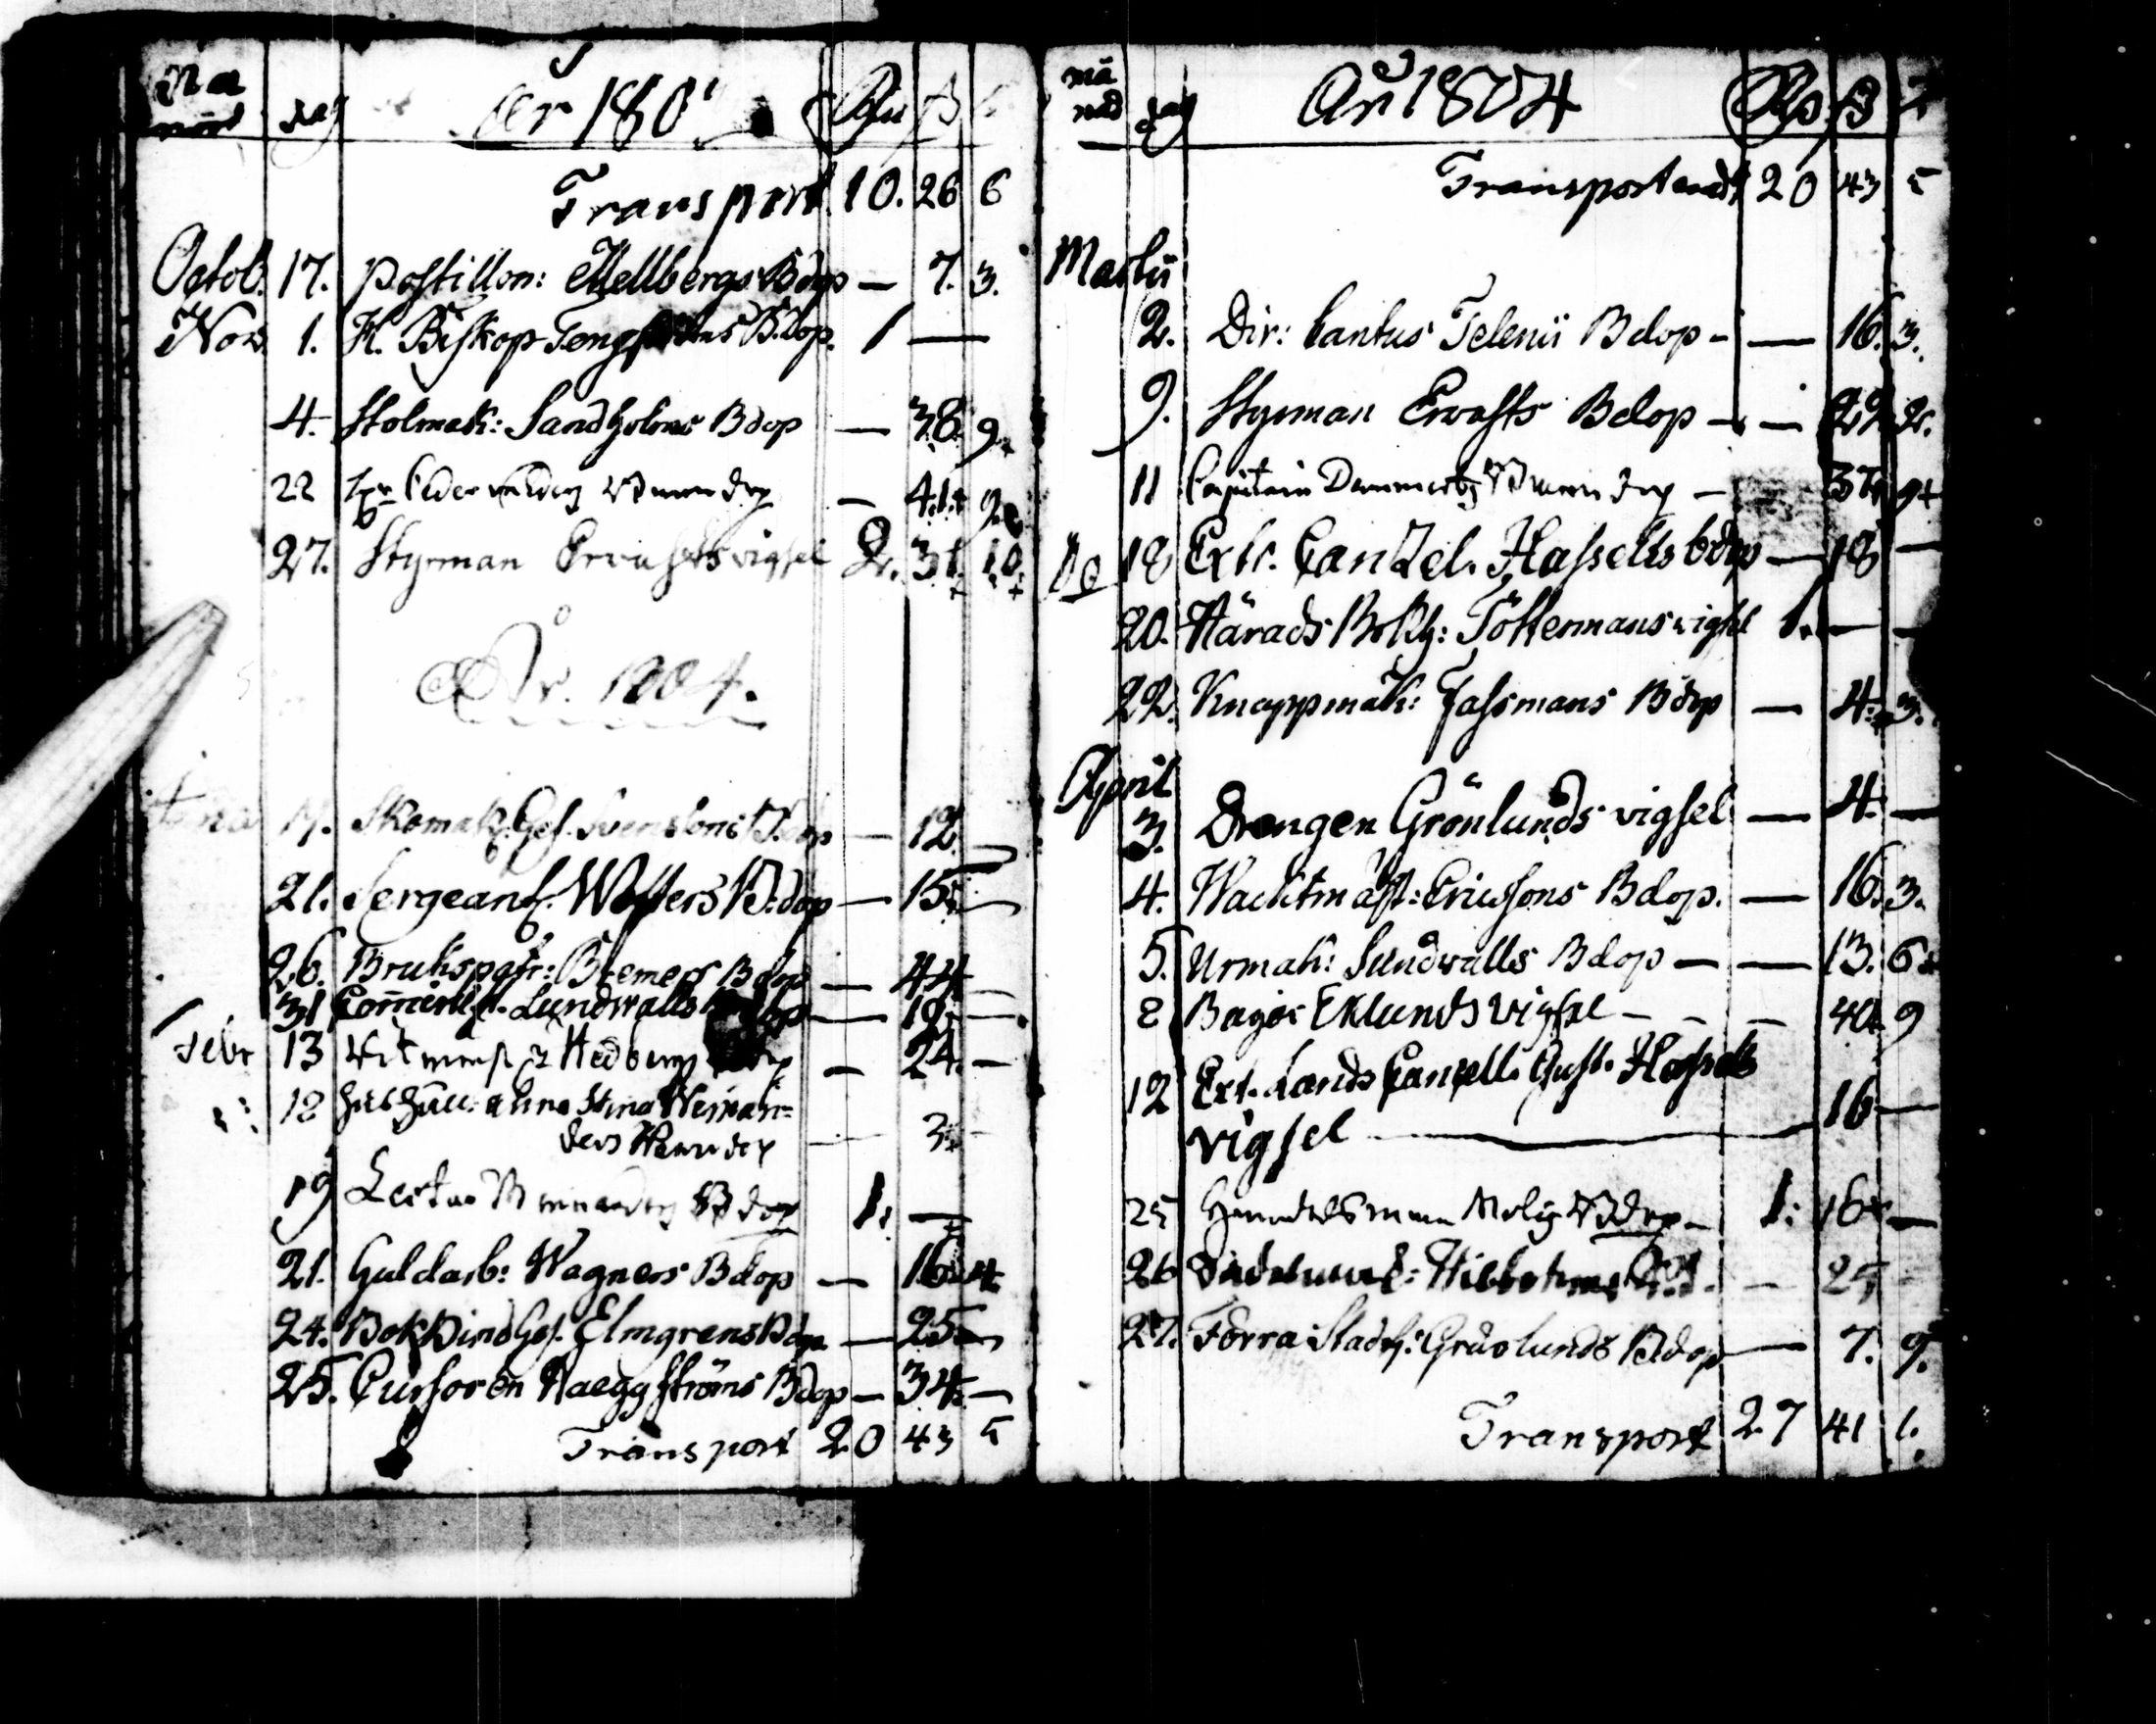 Må nad dag År 180 Rd ß
Transport. 10. 26 6
Octob. 17. Postillon: Mellbergs Bdop — 7. 3.
Nov. 1. H. Biskop Tengströms B.dop. 1 —
4. Stolmak: Sandholms Bdop — 38. 9.
22 dop — 41. 2
27. Styrman Ervasts vigsel 2. 31. 10.
År. 1804.
17. Skomak. Ges. Svensons B.dop — 12. —
21. Sergeant. Wollers B.dop — 15. —
26. Brukspatr: Bremers Bdop — 44
31 Comminist. Lundwalls — 19. —
Febr 13 Hedbergs dop — 24. —
18 Anna Stina Weinan=
ders dop — 3. —
19 Lector Bdop 1. —
21. Guldarb: Wagners Bdop — 16. 4.
24. Bokbind Ges. Elmgrens Bdop — 25. —
25. Cursoren Haeggströms Bdop — 34. —
Transport 20 43 5
må nad dag År 1804 Rd ß
Transporteradt 20 43 5
Martii
2. Dir: Cantus Telenii Bdop — — 16. 3.
9. Styrman Ervasts Bdop — — 22. 2.
11 Capitain dop — 37. 9
do 18 Extr. Canzel. Hassells bdop — 18 —
20. Härads Bokh: Töttermans vigsl 1. — —
22. Knappmak: Fassmans Bdop — 4. 3.
April
3. Drengen Grönlunds vigsel — 4. —
4. Wachtmäst: Ericssons Bdop. — 16. 3.
5. Urmak: Sundwalls Bdop — — 13. 6
8 Eklunds vigsel — — — 40. 9
12 Ext. Lands Cancell. Gust. Hassels
vigsel — 16 —
25 Bdop — 1: 16. —
26 — 25
27. Förra Stadsf: Grâlunds Bdop — 7. 9.
Transport 27 41 1.